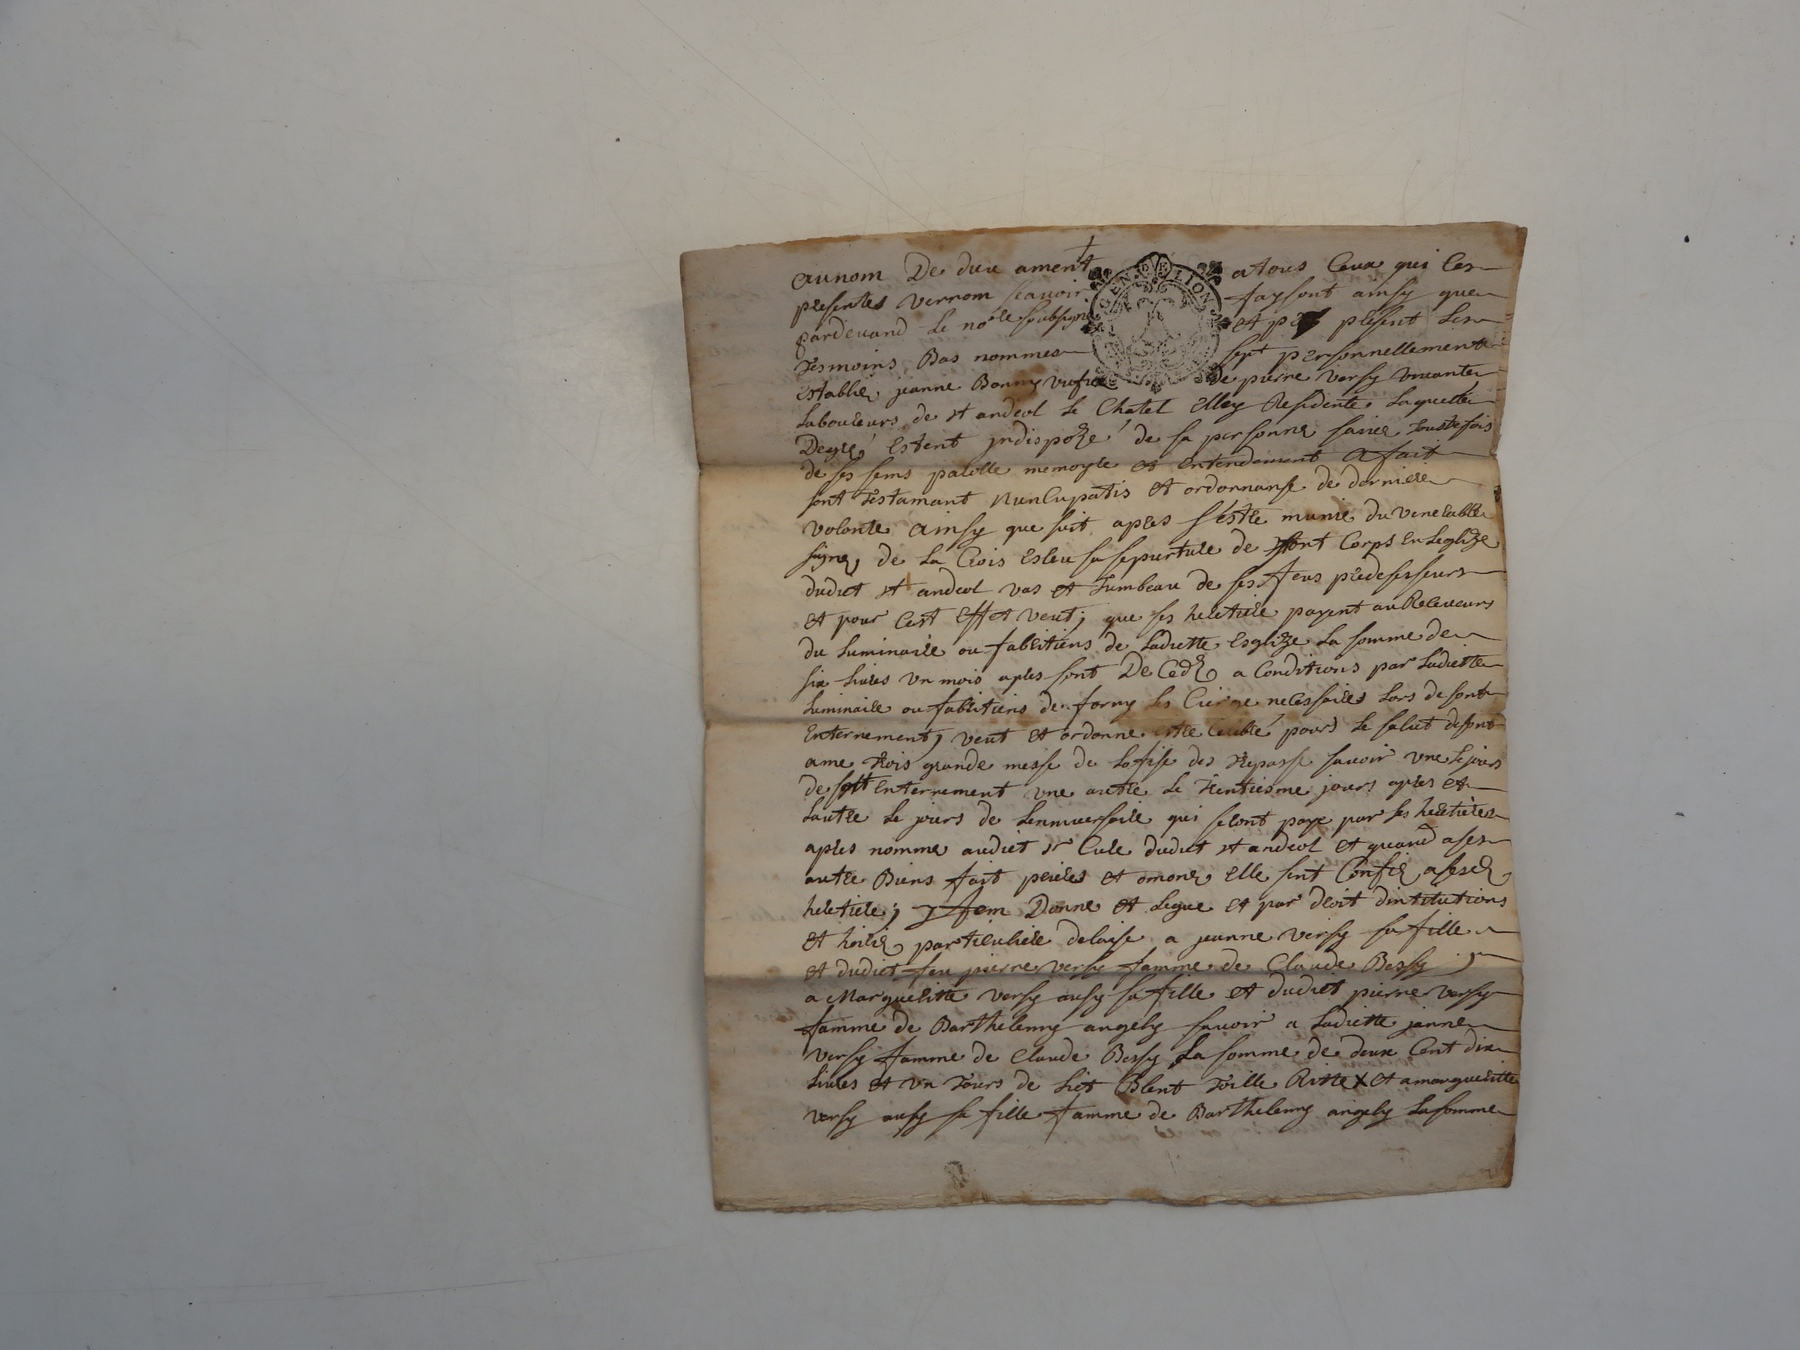 au nom De dieu ament atous Ceux qui Ces
presentes verrom scavoir faysont ainsy que
GEN DE LION
pardevand Le nore soubsigne et present Les
Tesmoins Bas nommes sept personnellement
establie jeanne Bonny de pierre versy vivante
Laboureurs de st andeol Le Chatel Elley Residente Laquelle
Degré Estent jndispozé de sa personne sainne toustefois
de ses sens parolle memoyre et Entendement A fait
sont Testamant NunCupatis et ordonnanse de derniere
volonte Ainsy que suit apres s'estre munie du venerable
signe de La Crois Esleu sa sepurture de sont Corps En Leglize
dudict st andeol vas et Tumbeau de ses feus predesesseurs
et pour Cest Effet veut; que ses heretiere payent au Releveurs
du Luminaire ou fabritiens de Ladictte Esglize La somme de
six Livres vn mois apres sont DeCedz a Conditions par Ladictte
Luminaire ou fabritiens de forny Les Cierge necessaires Lors de sont
Enterrement, veut et ordonne estre Celebré pours Le salut de sont
ame Trois grande messe de Lofise des Trepasse savoir vne Le jours
de Enterrement vne autre Le Trentiesme jours apres et
Lautre Le jours de Lennuersaire qui seront paye par ses heretieres
apres nomme audict sr Cure dudict st andeol et quand a ses
autre Biens fait prieres et omone Elle sent Confie a sesd
heretiere; jtem Donne et Legue et par droit dintitutions
et hoirie particuliere delaise a jeanne versy sa fille
et dudict feu pierre versy famme de Claude Bessy ;
a Marguerittte versy ausy sa fille et dudict pierre versy
famme de Barthelemy angely savoir a Ladictte janne
versy famme de Claude Bessy La somme de deux Cent dix
Livres et vn Tours de Lict Blent Toille Ritte X et a margueritte
versy ausy sa fille famme de Barthelemy angely La somme